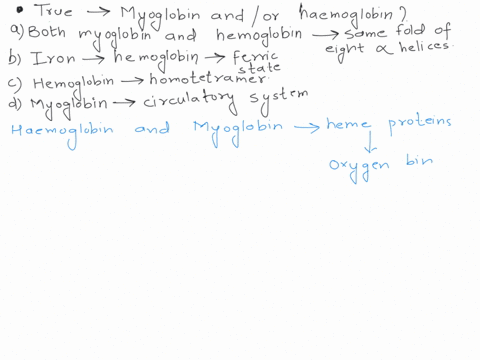 • True → Myoglobin and/or haemoglobin?
a) Both myoglobin and hemoglobin → same fold of
eight α helices.
b) Iron → hemoglobin → ferric
state
c) Hemoglobin → homotetramer.
d) Myoglobin → circulatory system
Haemoglobin and Myoglobin → heme proteins
↓
Oxygen bin